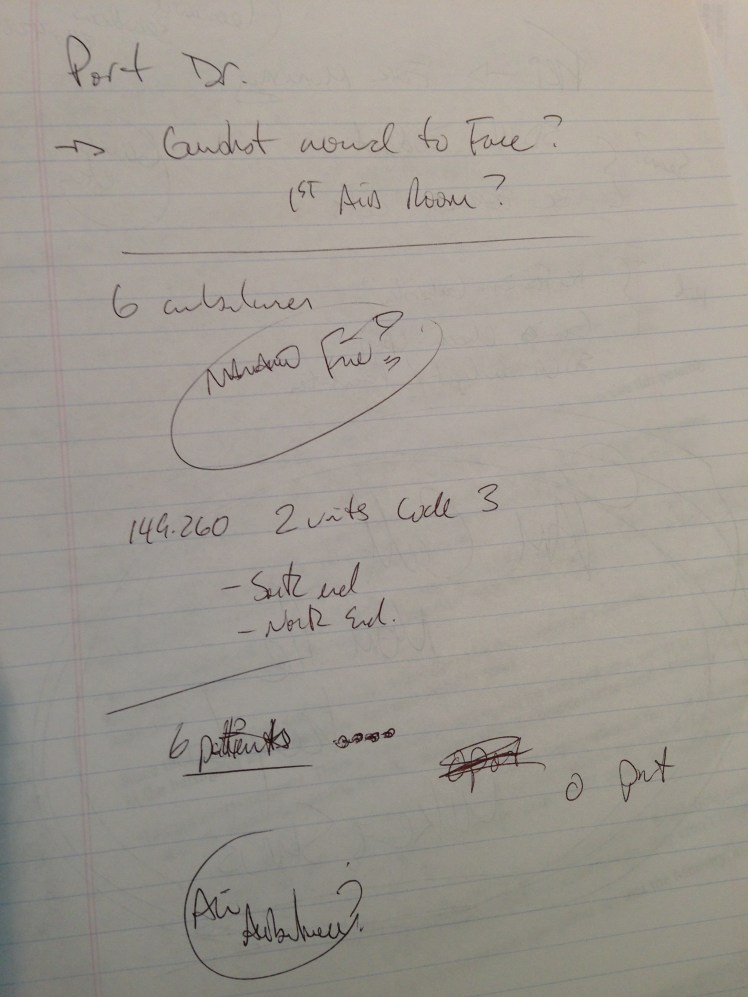 Port Dr.
→ Gunshot wound to Face?
1ST Aid Room?
6 ambulances
Nanaimo Fire?
149.260 2 units Code 3
- South end
- North End.
6 patients
o port
Air Ambulance?